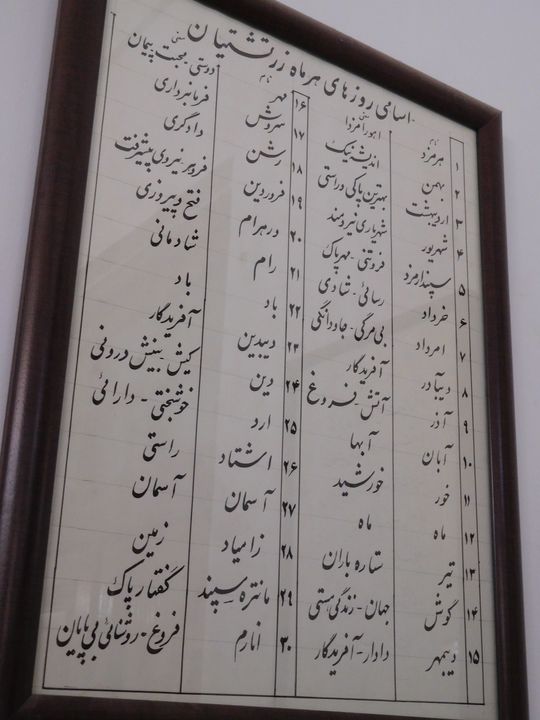 اسامی روزهای هر ماه زرتشتیان
نام معنی
۱ هرمزد اهورامزدا
۲ بهمن اندیشه نیک
۳ اردیبهشت بهترین پاکی و راستی
۴ شهریور شهریاری نیرومند
۵ سپندارمزد فروتنی - مهر پاک
۶ خرداد رسائی - شادی
۷ امرداد بی‌مرگی - جاودانگی
۸ دیبآذر آفریدگار
۹ آذر آتش - فروغ
۱۰ آبان آبها
۱۱ خور خورشید
۱۲ ماه ماه
۱۳ تیر ستاره باران
۱۴ گوش جهان - زندگی هستی
۱۵ دیبمهر دادار - آفریدگار
نام معنی
۱۶ مهر دوستی محبت پیمان
۱۷ سروش فرمانبرداری
۱۸ رشن دادگری
۱۹ فروردین فروهر نیروی پیشرفت
۲۰ ورهرام فتح و پیروزی
۲۱ رام شادمانی
۲۲ باد باد
۲۳ دیبدین آفریدگار
۲۴ دین کیش - بینش درونی
۲۵ ارد خوشبختی - دارائی
۲۶ اشتاد راستی
۲۷ آسمان آسمان
۲۸ زامیاد زمین
۲۹ مانتره سپند گفتار پاک
۳۰ انارم فروغ - روشنائی بی پایان